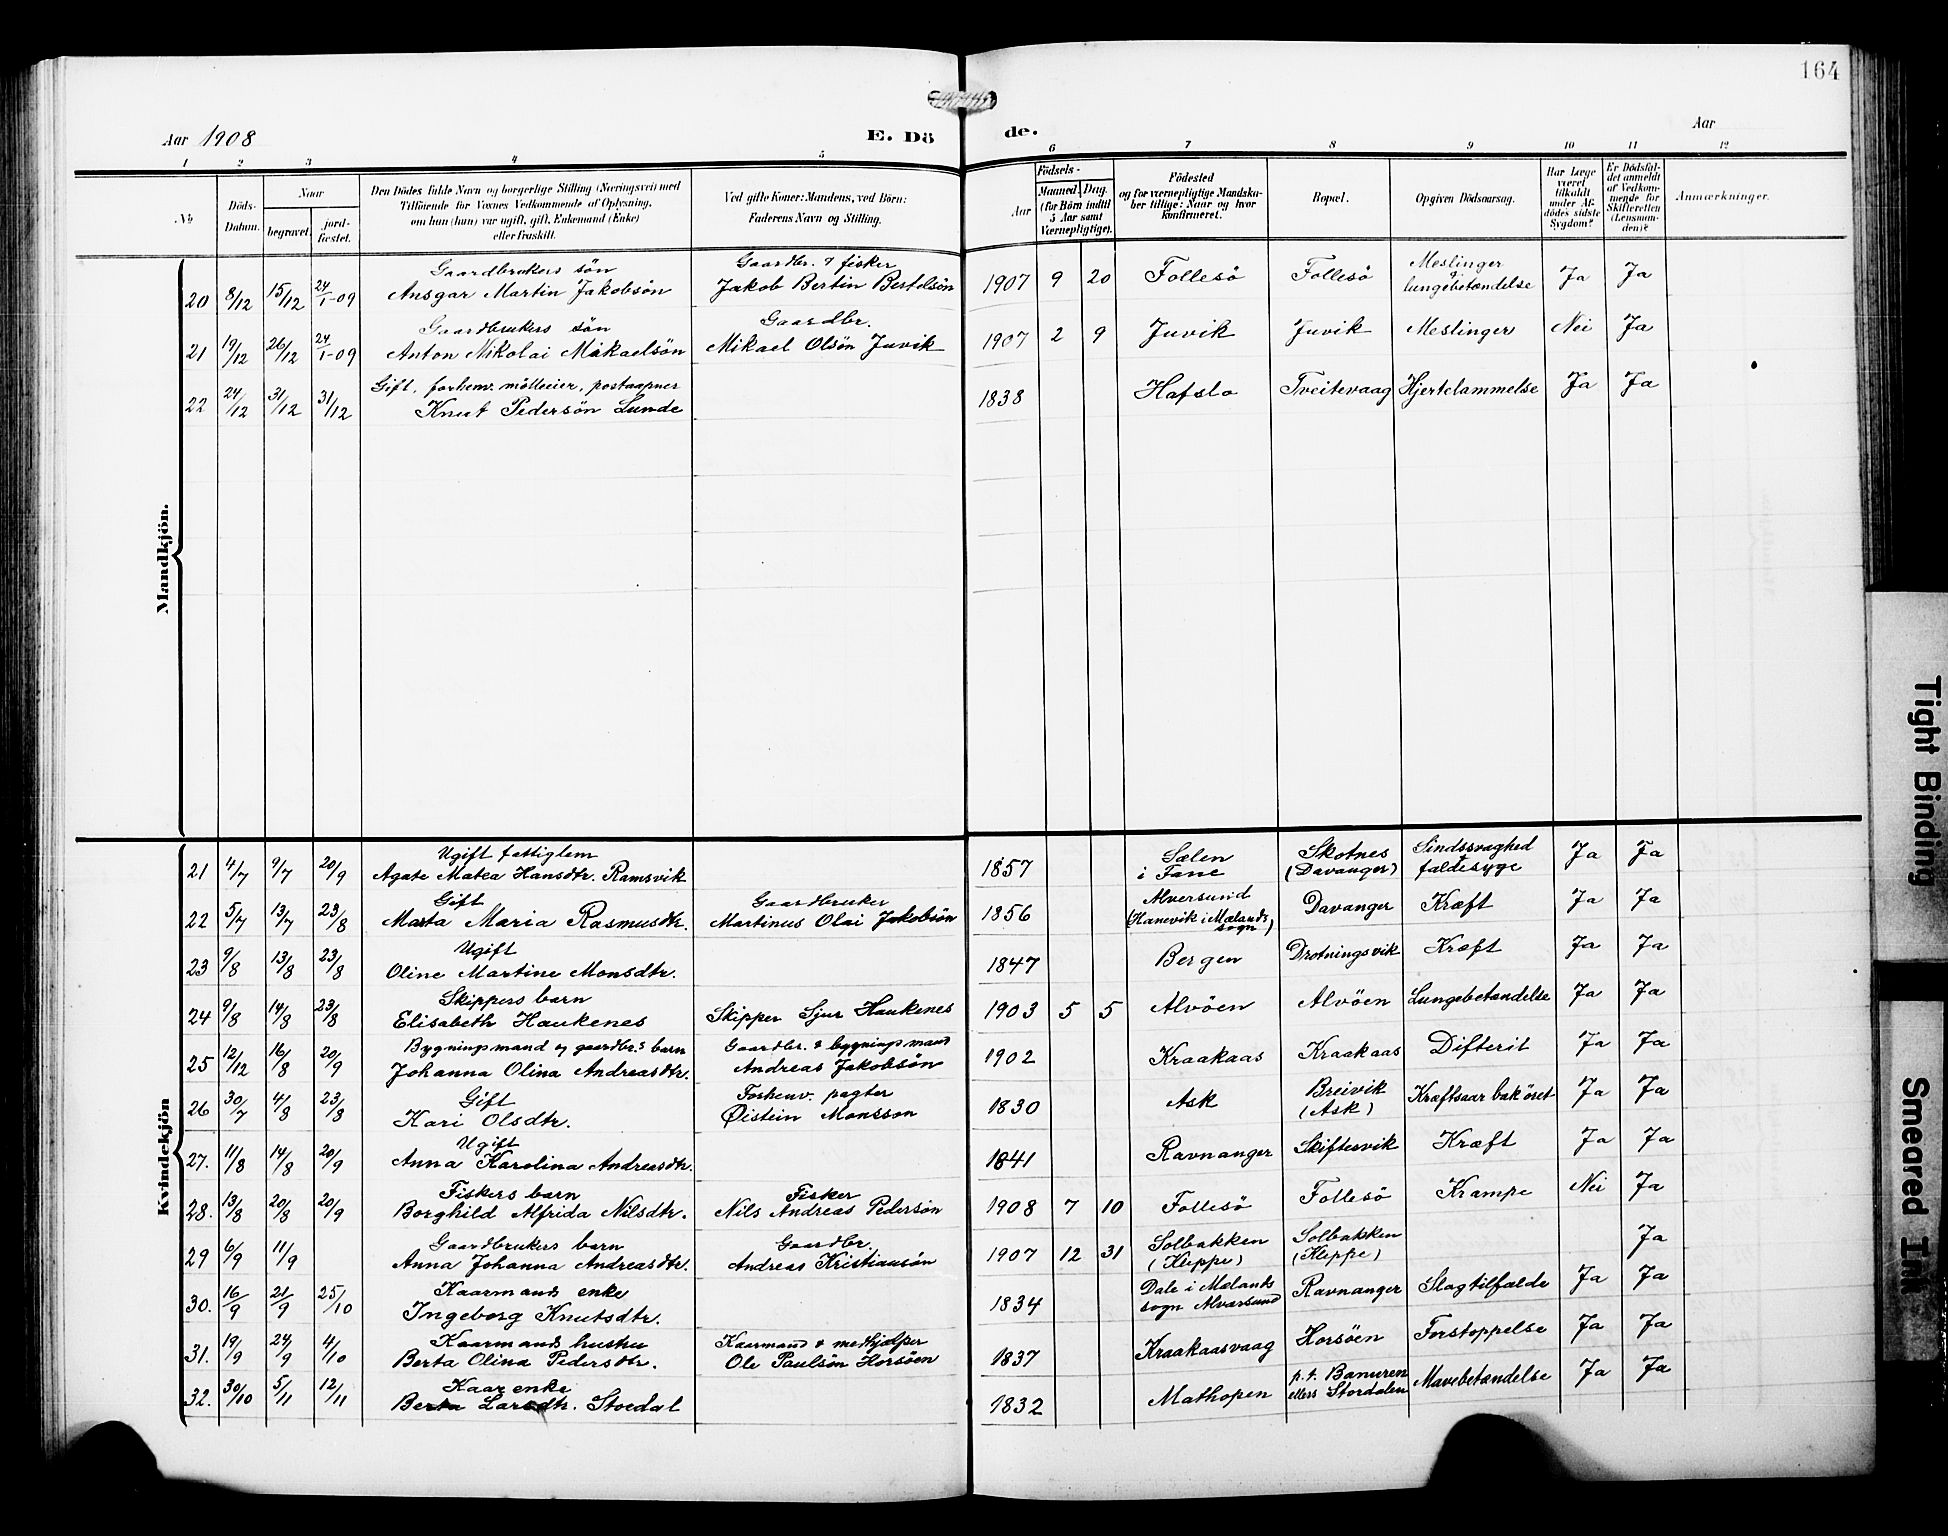 164
Aar 1908
E. Dö de.
Aar
1 2 3 4 5 6 7 8 9 10 11 12
No
Döds-Datum.
Naar
begravet.
jord-fæstet.
Den Dödes fulde Navn og borgerlige Stilling (Næringsvei) med Tilföiende for Voxnes Vedkommende af Oplysning, om han (hun) var ugift, gift, Enkemand (Enke) eller fraskilt.
Ved gifte Koner: Mandens, ved Börn: Faderens Navn og Stilling.
Födsels-
Aar
Maaned. Dag. (for Börn indtil 5 Aar samt Værnepligtige).
Födested og for værnepligtige Mandskaber tillige: Naar og hvor konfirmeret.
Bopæl.
Opgiven Dödsaarsag.
Har Læge været tilkaldt under Afdödes sidste Sygdom?
Er Dödsfaldet anmeldt af Vedkommende for Skifteretten (Lensmanden)?
Anmærkninger.
Mandkjön.
20 8/12 15/12 24/1-09 Gaardbrukers sön Ansgar Martin Jakobsön Gaardbr. & fisker Jakob Bertin Bertelsön 1907 9 20 Follesö Follesö Meslinger & lungebetændelse Ja Ja
21 19/12 26/12 24/1-09 Gaardbrukers sön Anton Nikolai Mikaelsön Gaardbr. Mikael Olsön Juvik 1907 2 9 Juvik Juvik Meslinger Nei Ja
22 24/12 31/12 31/12 Gift, forhenv. mölleeier, postaapner Knut Pedersön Lunde 1838 Hafslo Tveitevaag Hjertelammelse Ja Ja
Kvindekjön
21 4/7 9/7 20/9 Ugift fattiglem Agate Matea Hansdtr. Ramsvik 1857 Sælen i Fane Skotnes (Davanger) Sindssvaghed + faldesyge Ja Ja
22 5/7 13/7 23/8 Gift Marta Maria Rasmusdtr. Gaardbruker Martinus Olai Jakobsön 1856 Alversund (Hanevik i Mælands sogn) Davanger Kræft Ja Ja
23 9/8 13/8 23/8 Ugift Oline Martine Monsdtr. 1847 Bergen Drotningsvik Kræft Ja Ja
24 9/8 14/8 23/8 Skippers barn Elisabeth Haukenes Skipper Sjur Haukenes 1903 5 5 Alvöen Alvöen Lungebetændelse Ja Ja
25 12/12 16/8 20/9 Bygningsmand og gaardbr.s barn Johanna Olina Andreasdtr. Gaardbr. & bygningsmand Andreas Jakobsön 1902 Kraakaas Kraakaas Difterit Ja Ja
26 30/7 4/8 23/8 Gift Kari Olsdtr. Forhenv. pagter Øistein Monsson 1830 Ask Breivik (Ask) Kræftsaar bak öret Ja Ja
27. 11/8 14/8 20/9 Ugift Anna Karolina Andreasdtr. 1841 Ravnanger Skiftesvik Kræft Ja Ja
28. 13/8 20/8 20/9 Fiskers barn Borghild Alfrida Nilsdtr. Fisker Nils Andreas Pedersön 1908 7 10 Follesö Follesö Krampe Nei Ja
29 6/9 11/9 Gaardbrukers barn Anna Johanna Andreasdtr. Gaardbr. Andreas Kristiansön 1907 12 31 Solbakken (Kleppe) Solbakken (Kleppe) Ja
30. 16/9 21/9 25/10 Kaarmands enke Ingeborg Knutsdtr. 1834 Dale i Mælands sogn Alversund Ravnanger Slagtilfælde Ja Ja
31. 19/9 24/9 4/10 Kaarmands hustru Berta Olina Pedersdtr. Kaarmand & medhjælper Ole Paulsön Horsöen 1837 Kraakaasvaag Horsöen Forstoppelse Ja Ja
32. 30/10 5/11 12/11 Kaarenke Berta Larsdtr. Stordal 1832 Mathopen p.t. Banuren ellers Stordalen Mavebetændelse Ja Ja
Tight Binding
Smeared Ink